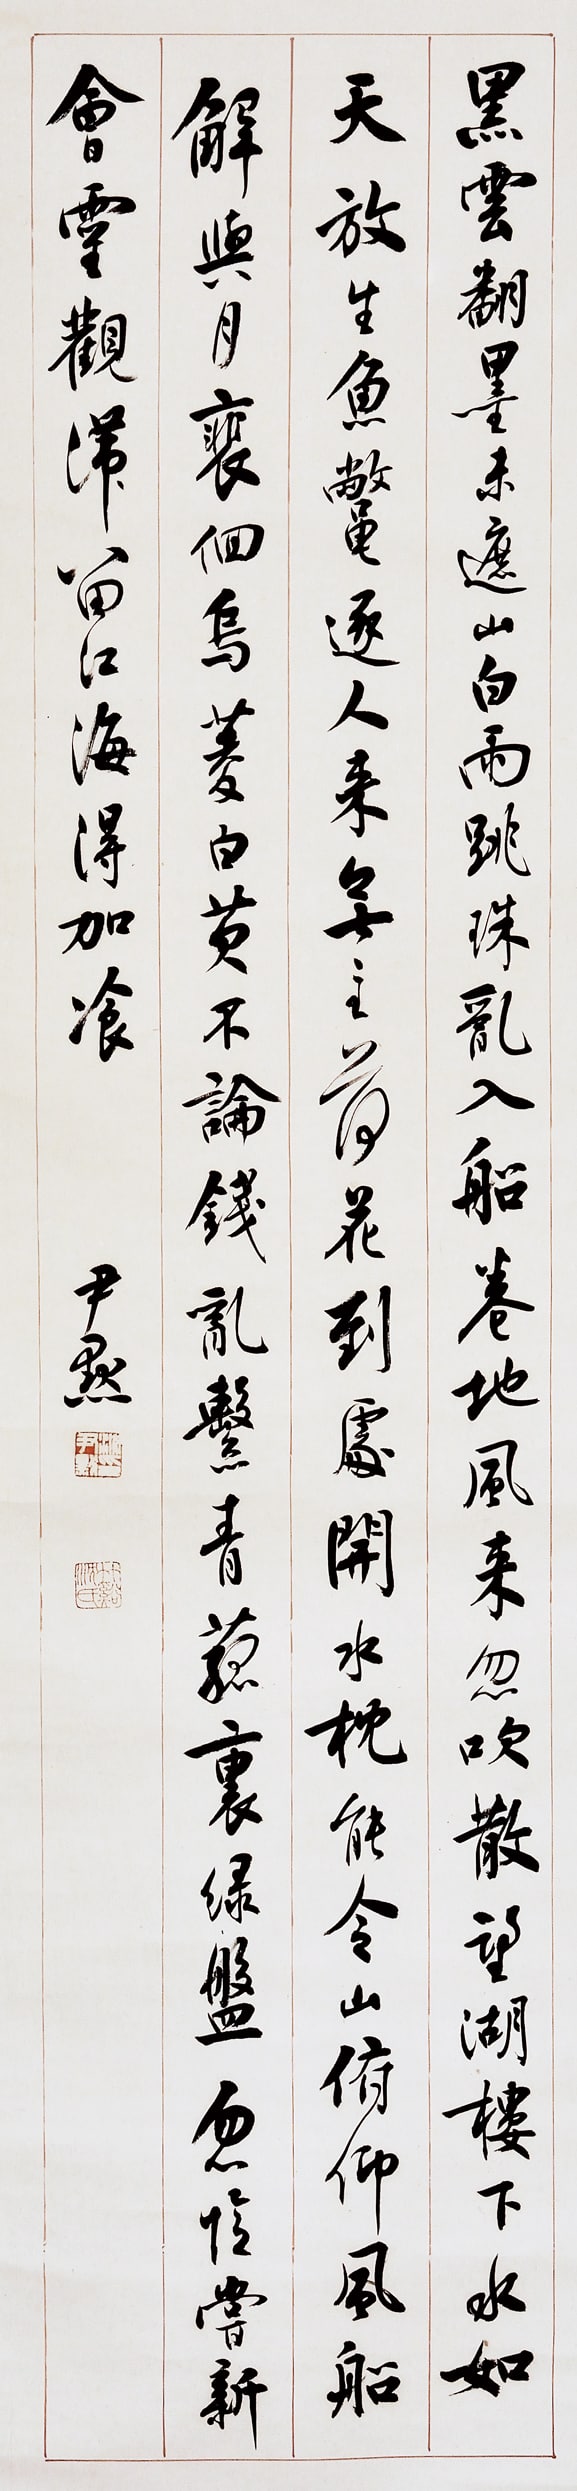 黑雲翻墨未遮山白雨跳珠亂入船卷地風来忽吹散望湖樓下水如
天放生魚鼈逐人来無主荷花到處開水枕能令山俯仰風船
解與月裵佪烏菱白芡不論錢亂繫青菰裹綠盤忽憶嘗新
會靈觀滯留江海得加飡
尹默